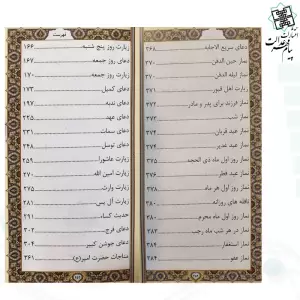 فهرست
زیارت روز پنج شنبه ... ۱۶۶
دعای روز جمعه ... ۱۶۷
زیارت روز جمعه ... ۱۷۰
دعای کمیل ... ۱۷۳
دعای ندبه ... ۱۹۷
دعای عهد ... ۲۲۵
دعای سمات ... ۲۳۱
دعای توسل ... ۲۴۸
زیارت عاشورا ... ۲۵۹
زیارت امین الله ... ۲۷۰
زیارت وارث ... ۲۷۵
زیارت آل یس ... ۲۸۱
حدیث کساء ... ۲۹۱
دعای فرج ... ۳۰۲
دعای جوشن کبیر ... ۳۰۴
مناجات حضرت امیر(ع) ... ۳۶۱
دعای سریع الاجابه ... ۳۶۸
نماز حین الدفن ... ۳۷۰
نماز لیله الدفن ... ۳۷۰
زیارت اهل قبور ... ۳۷۱
نماز فرزند برای پدر و مادر
نماز شب ... ۳۷۳
نماز عید قربان ... ۳۷۴
نماز عید غدیر ... ۳۷۴
نماز روز اول ماه ذی الحجه
نماز عید فطر ... ۳۷۶
نماز روز اول هر ماه ... ۳۷۸
نافله های روزانه ... ۳۸۰
نماز روز اول ماه محرم
نماز در هر شب ماه رجب
نماز استغفار ... ۳۸۴
نماز عفو ... ۳۸۴